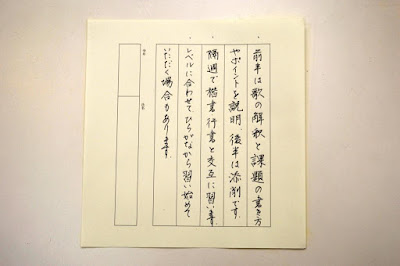 前半は歌の解釈と課題の書き方
やポイントを説明、後半は添削です。
隔週で楷書行書と交互に習います。
レベルに合わせて、ひらがなから習い始めて
いただく場合もあります。